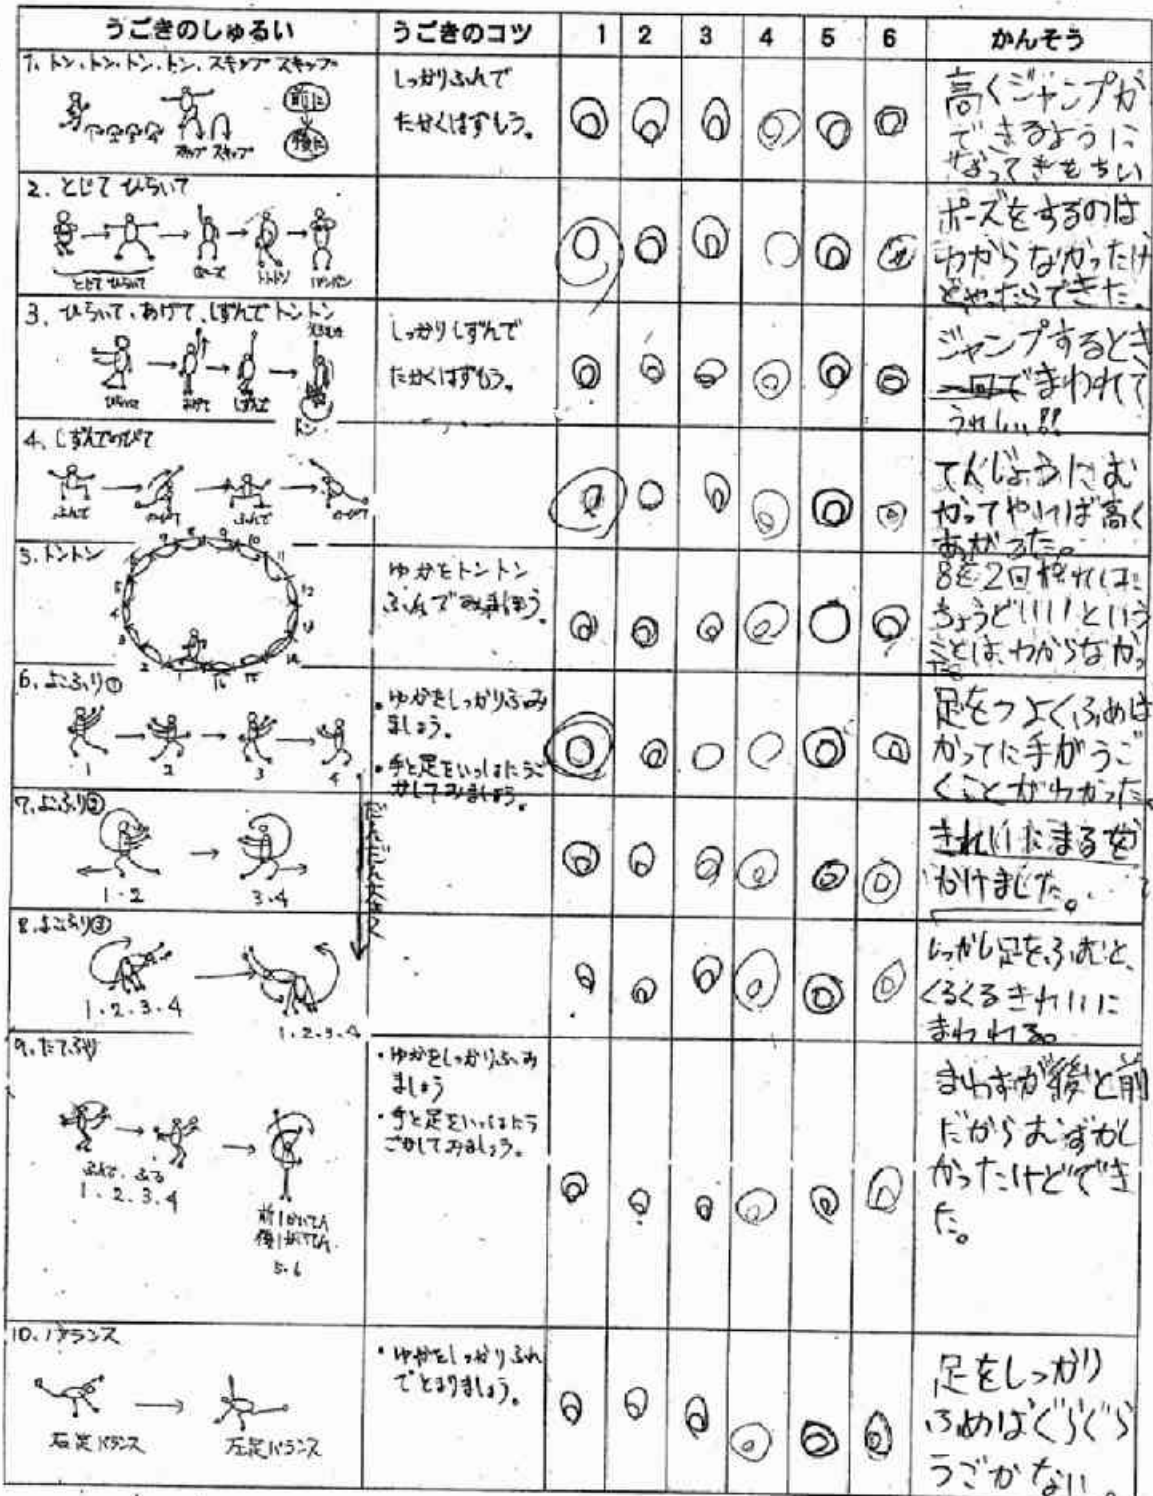 うごきのしゅるい うごきのコツ 1 2 3 4 5 6 かんそう
1. トン、トン、トン、トン、スキップ スキップ
前に
後に
スキップ スキップ
しっかりふんで
たかくはずもう。
高くジャンプが
できるように
なってきもちい
2. とじて ひらいて
とじて ひらいて
ポーズ
トントン
ポーズをするのは
わからなかったけ
どやったらできた。
3. ひらいて、あげて、しずんで トントン
ひらいて
あげて
しずんで
トン
しっかりしずんで
たかくはずもう。
ジャンプするとき
一回でまわれて
うれしい!!
4. しずんでのびて
ふんで
のびて
ふんで
のびて
てんじょうにむ
かってやれば高く
あがった。
5. トントン
ゆかをトントン
ふんでみましょう。
8を2回やれば
ちょうどいいという
ことは、わからなかっ
た。
6. よこふり①
1 2 3 4
・ゆかをしっかりふみ
ましょう。
・手と足をいっぱいうご
かしてみましょう。
足をつよくふめば
かってに手がうご
くことがわかった。
7. よこふり②
1・2 3・4
だんだん大きく
きれいなまるを
かけました。
8. よこふり③
1・2・3・4
1・2・3・4
しっかし足をふむと、
くるくるきれいに
まわれる。
9. たてふり
ふんで、ふる
1・2・3・4
前1かいてん
後1かいてん
5・6
・ゆかをしっかりふみ
ましょう
・手と足をいっぱいう
ごかしてみましょう。
まわすが後と前
だからむずかし
かったけどできた
た。
10. バランス
右足バランス
左足バランス
・ゆかをしっかりふん
でとまりましょう。
足をしっかり
ふめばぐらぐら
うごかない。